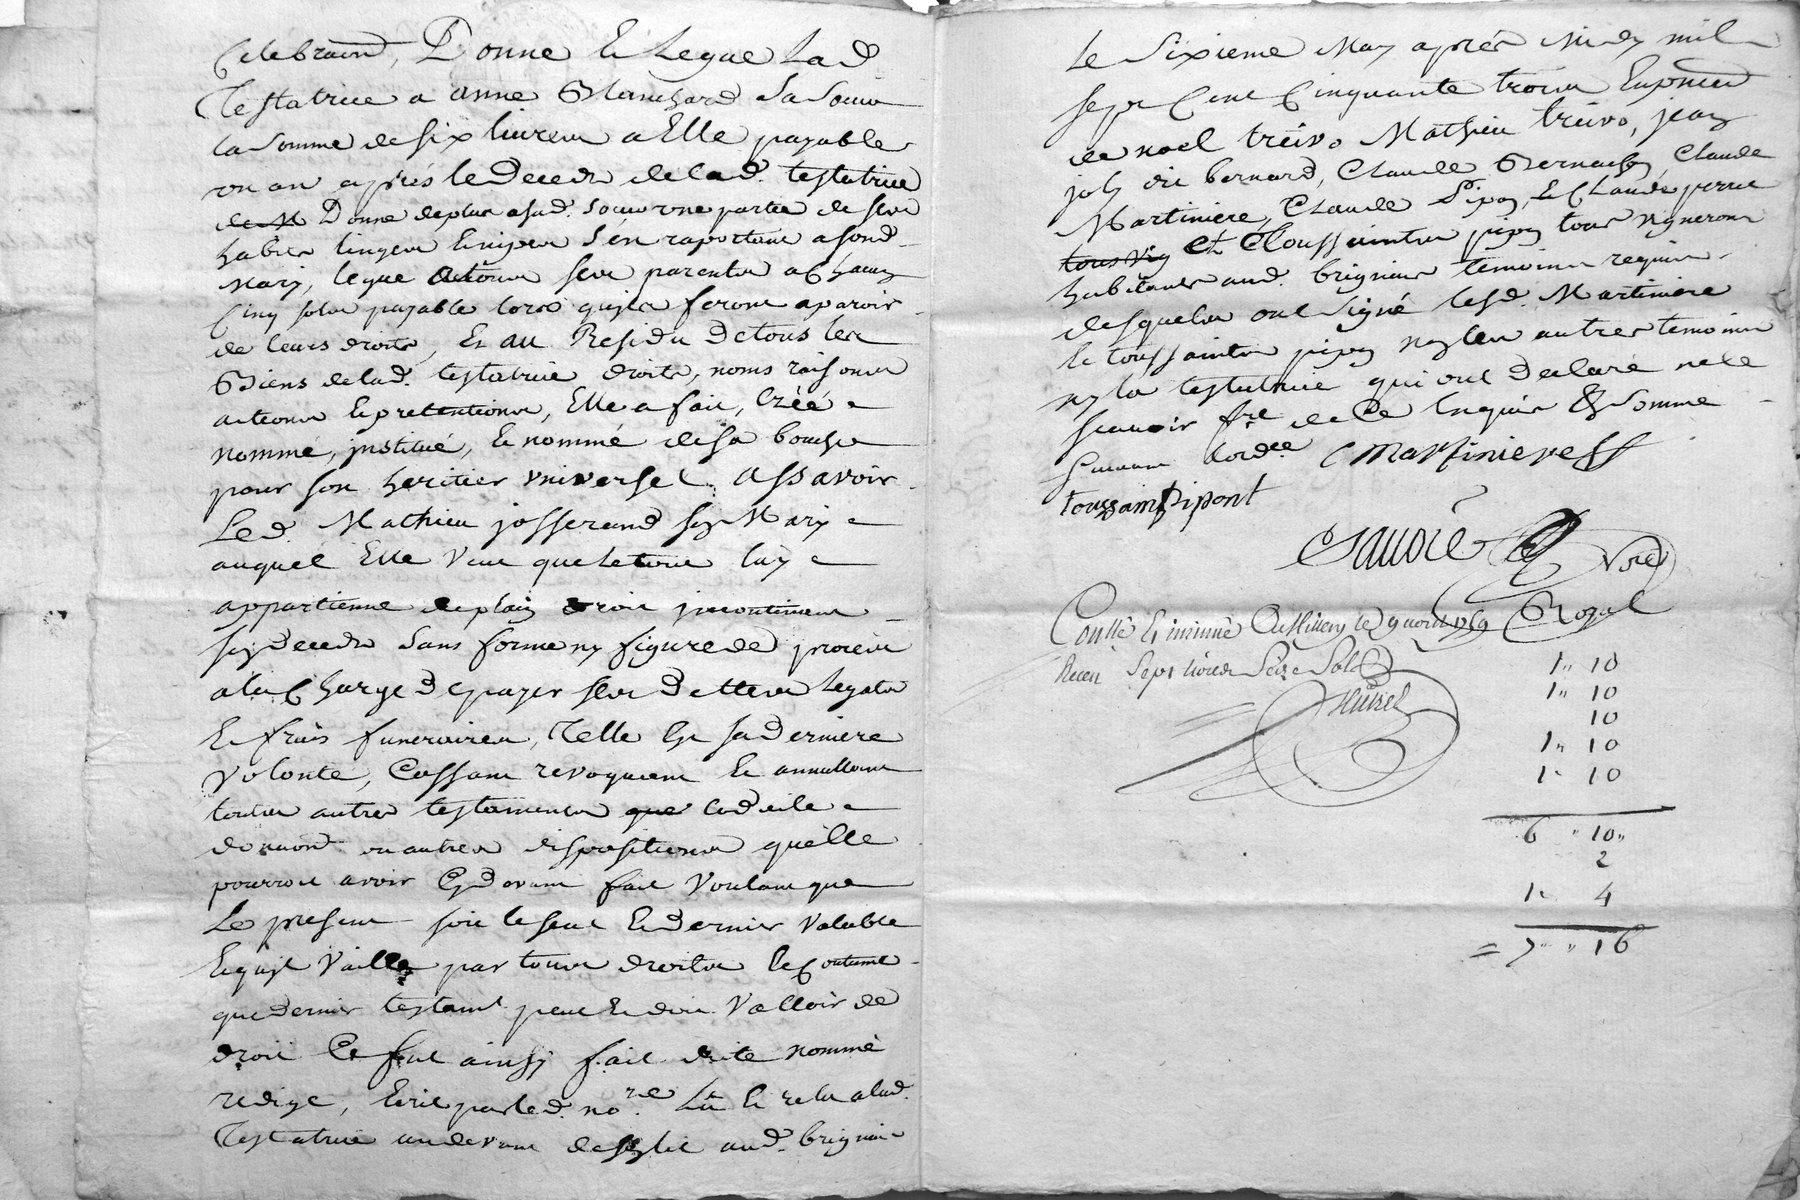 Celebrant, Donne & Legue Lad
Testatrice a anne Blanchard Sa Soeur
La Somme de six livres a Elle payable
un an apres le Deceds de lad. testatrice
Donne deplus a sad. Soeur une partie de ses
habits linges & nipes S'en raportant a sond
Mary, legue a tous ses parents a Chacun
Cinq sols payable lors quils feront aparoir
de leurs droits, Et au Residu de tous les
Biens de lad. testatrice droits, noms raisons
actions & pretentions, Elle a fait, Créé
nommé, institué, & nommé de sa bouche
pour son heritier universel Assavoir
Led Mathieu josserand son Mary
auquel Elle Veut que le tout luy
appartienne de plain droit incontinent
son deceds Sans forme ny figure de proces
a la Charge de payer ses Dettes Legats
& frais funeraires, Telle Est sa derniere
Volonté, Cassant revoquant & annullant
toutes autres testaments que codicile
donation ou autres dispositions quelle
pourroit avoir Cy devant fait Voulant que
Le present soit le seul & dernier Valable
& quil Vaille par tous droits & Coutume
que dernier testamt peut & doit Valloir de
droit Ce fut ainsy fait dicté nommé
redigé, Ecrit par led. nore Lû & relu a lad.
Testatrice au devant aud. brignais
Le Sixieme May aprés Midy mil
sept Cent Cinquante trois En presence
de noel treivo Mathieu treivo, jean
joly dit bernard, Claude Bernachon, Claude
Martiniere, Claude Pipon, & Claude perret
tous vig et Toussaintes pipon tous vignerons
habitants aud. brignais temoins requis
desquels ont Signé lesd. Martiniere
& toussaints pipon ny les autres temoins
ny la testatrice qui ont Declaré ne le
scavoir fre de Ce Enquis & Somme
suivant lordce C Martiniere
toussain pipont
Sauvié Nore
Royal
Conllé & insinué le 9 1759
Recu Sept livres Seize Sols
1" 10
1" 10
10
1" 10
1" 10
6 " 10"
2
1" 4
= 7 " " 16